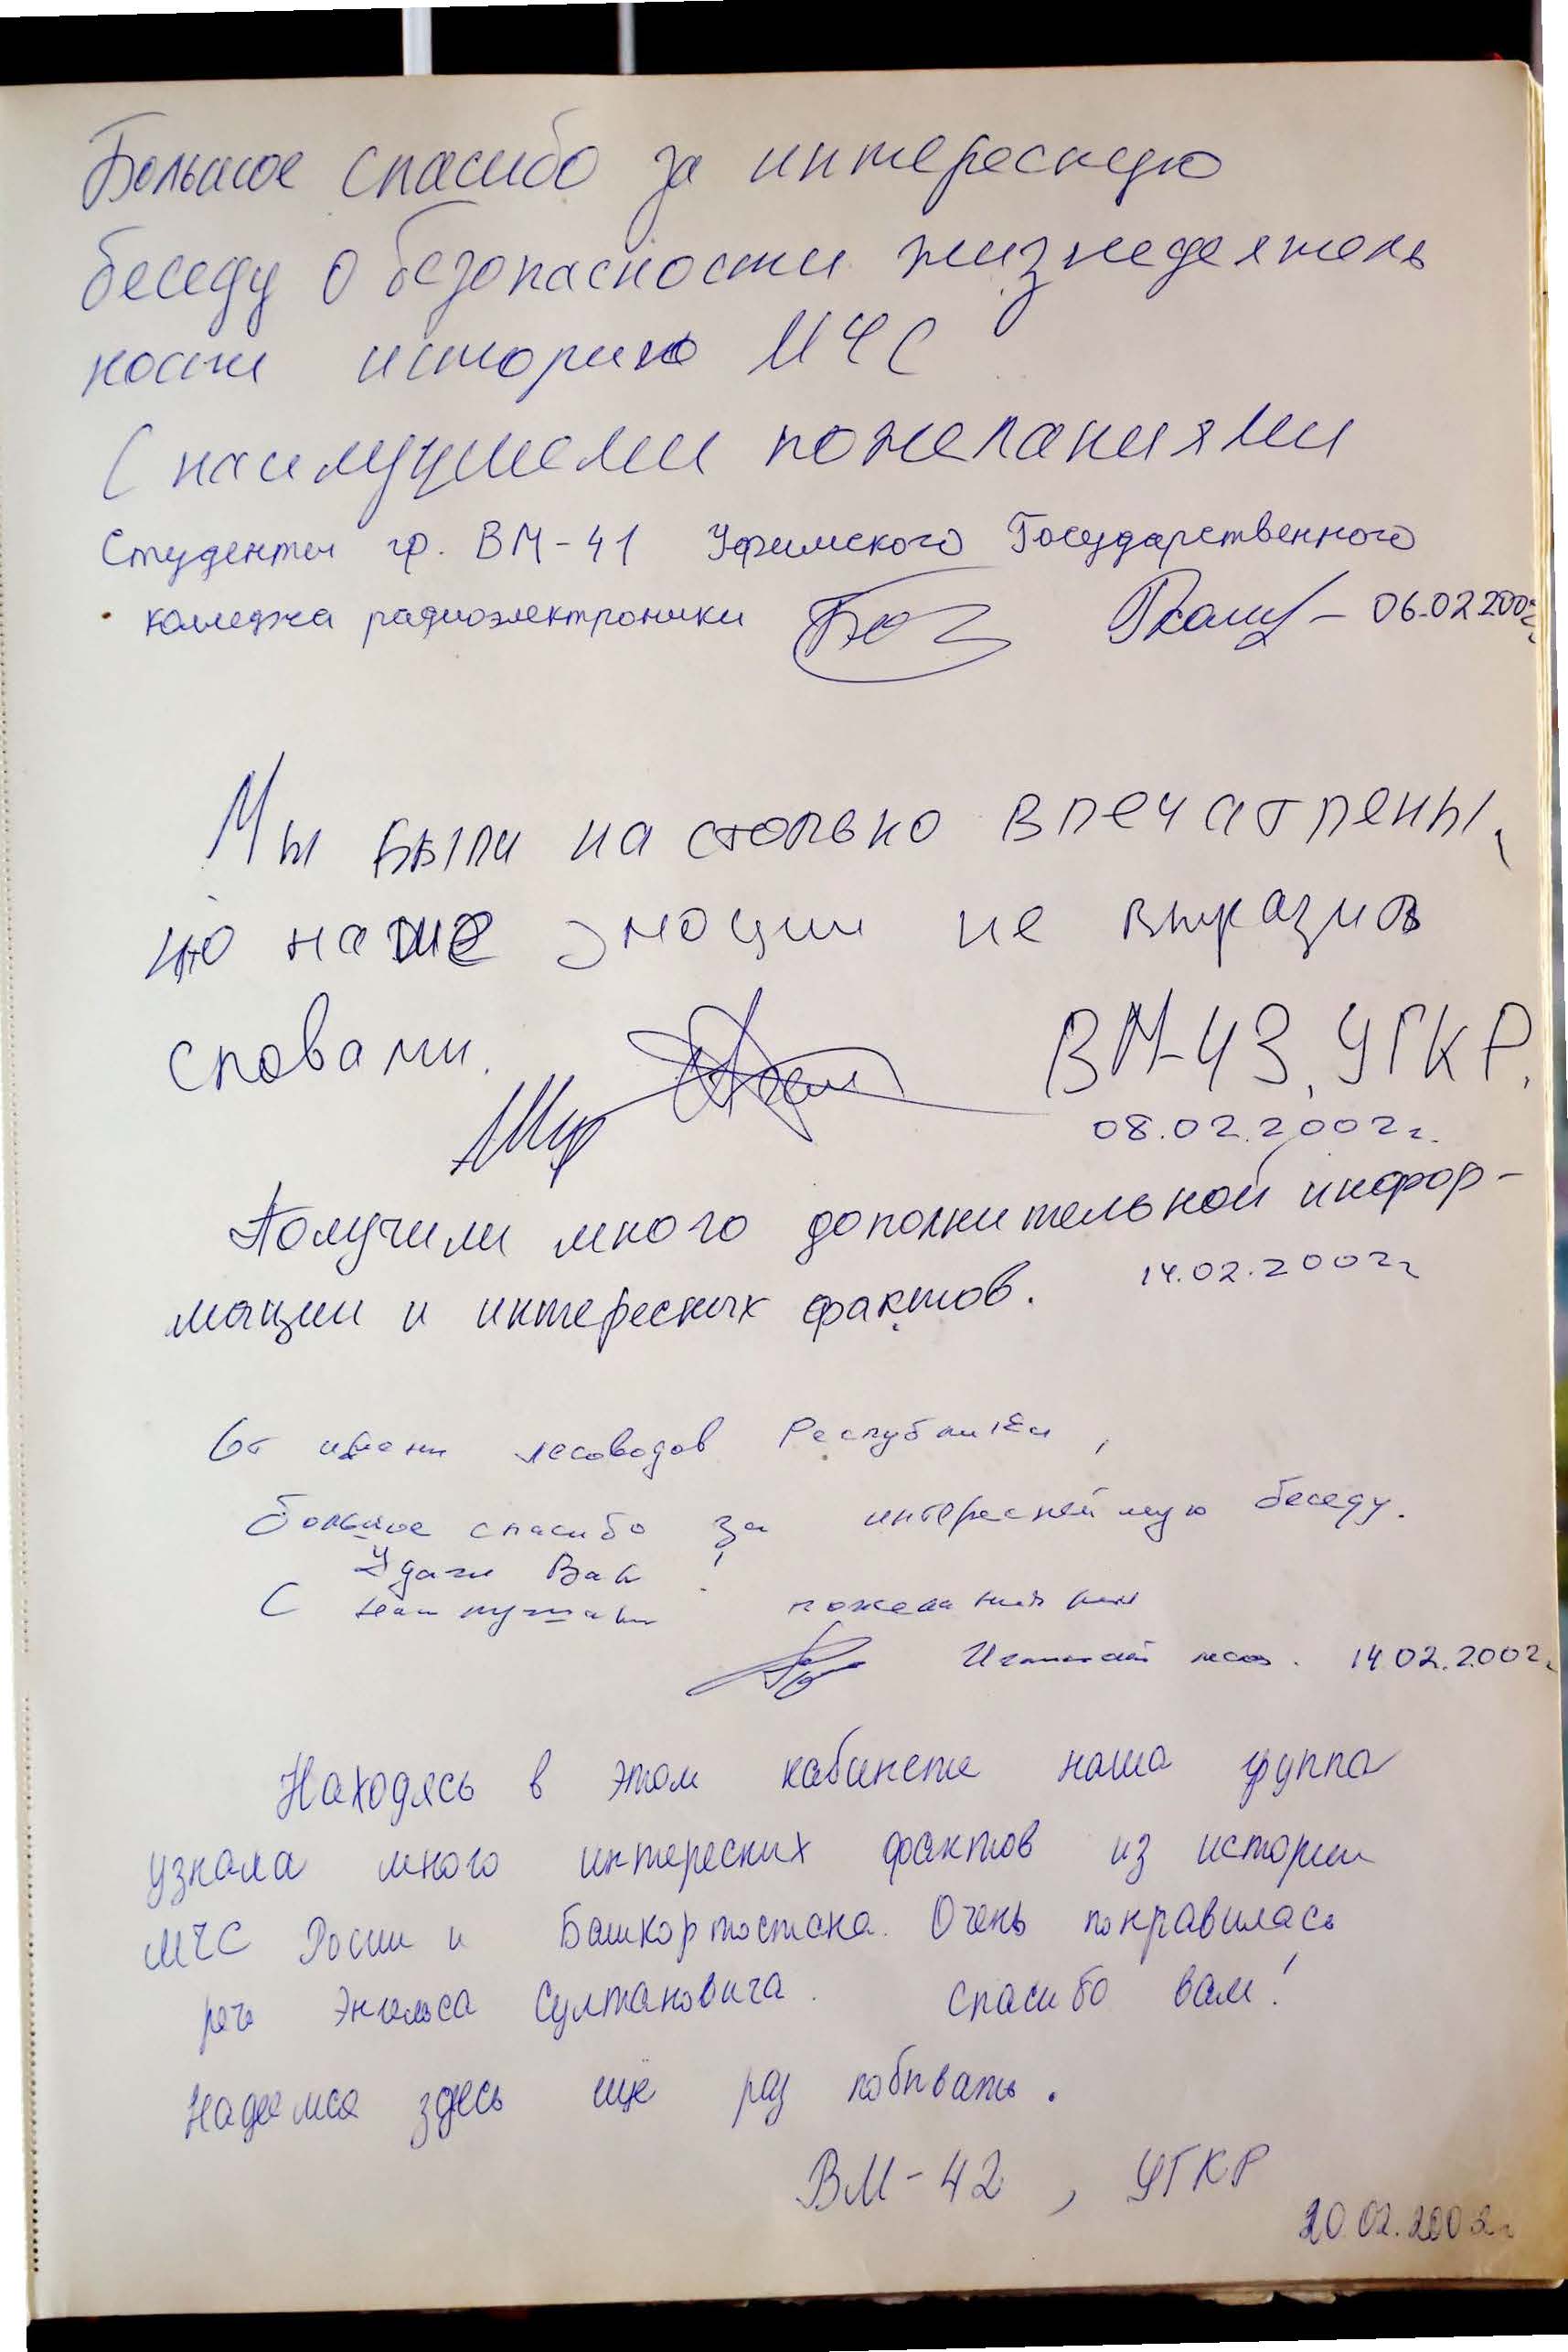 Большое спасибо за интересную
беседу о безопасности жизнедеятель
ности историю МЧС
С наилучшеми пожеланиями
Студенты гр. ВМ-41 Уфимского Государственного
колледжа радиоэлектроники 06.02 2002г.
Мы были на столько впечатлены,
что наше эмоции не выразить
словами. ВМ-43, УГКР.
08.02.2002г.
Получили много дополнительной инфор-
мации и интересных фактов. 14.02.2002г
От имени лесоводов Республики,
большое спасибо за интереснейшую беседу.
Удачи Вам!
С наилучшими пожеланиями
14.02.2002г.
Находясь в этом кабинете наша группа
узнала много интересних фактов из истории
МЧС Росии и Башкортостана. Очень понравилась
речь Энгельса Султановича. Спасибо вам!
Надеемся здесь ещё раз побывать.
ВМ-42, УГКР
20.02.2002г